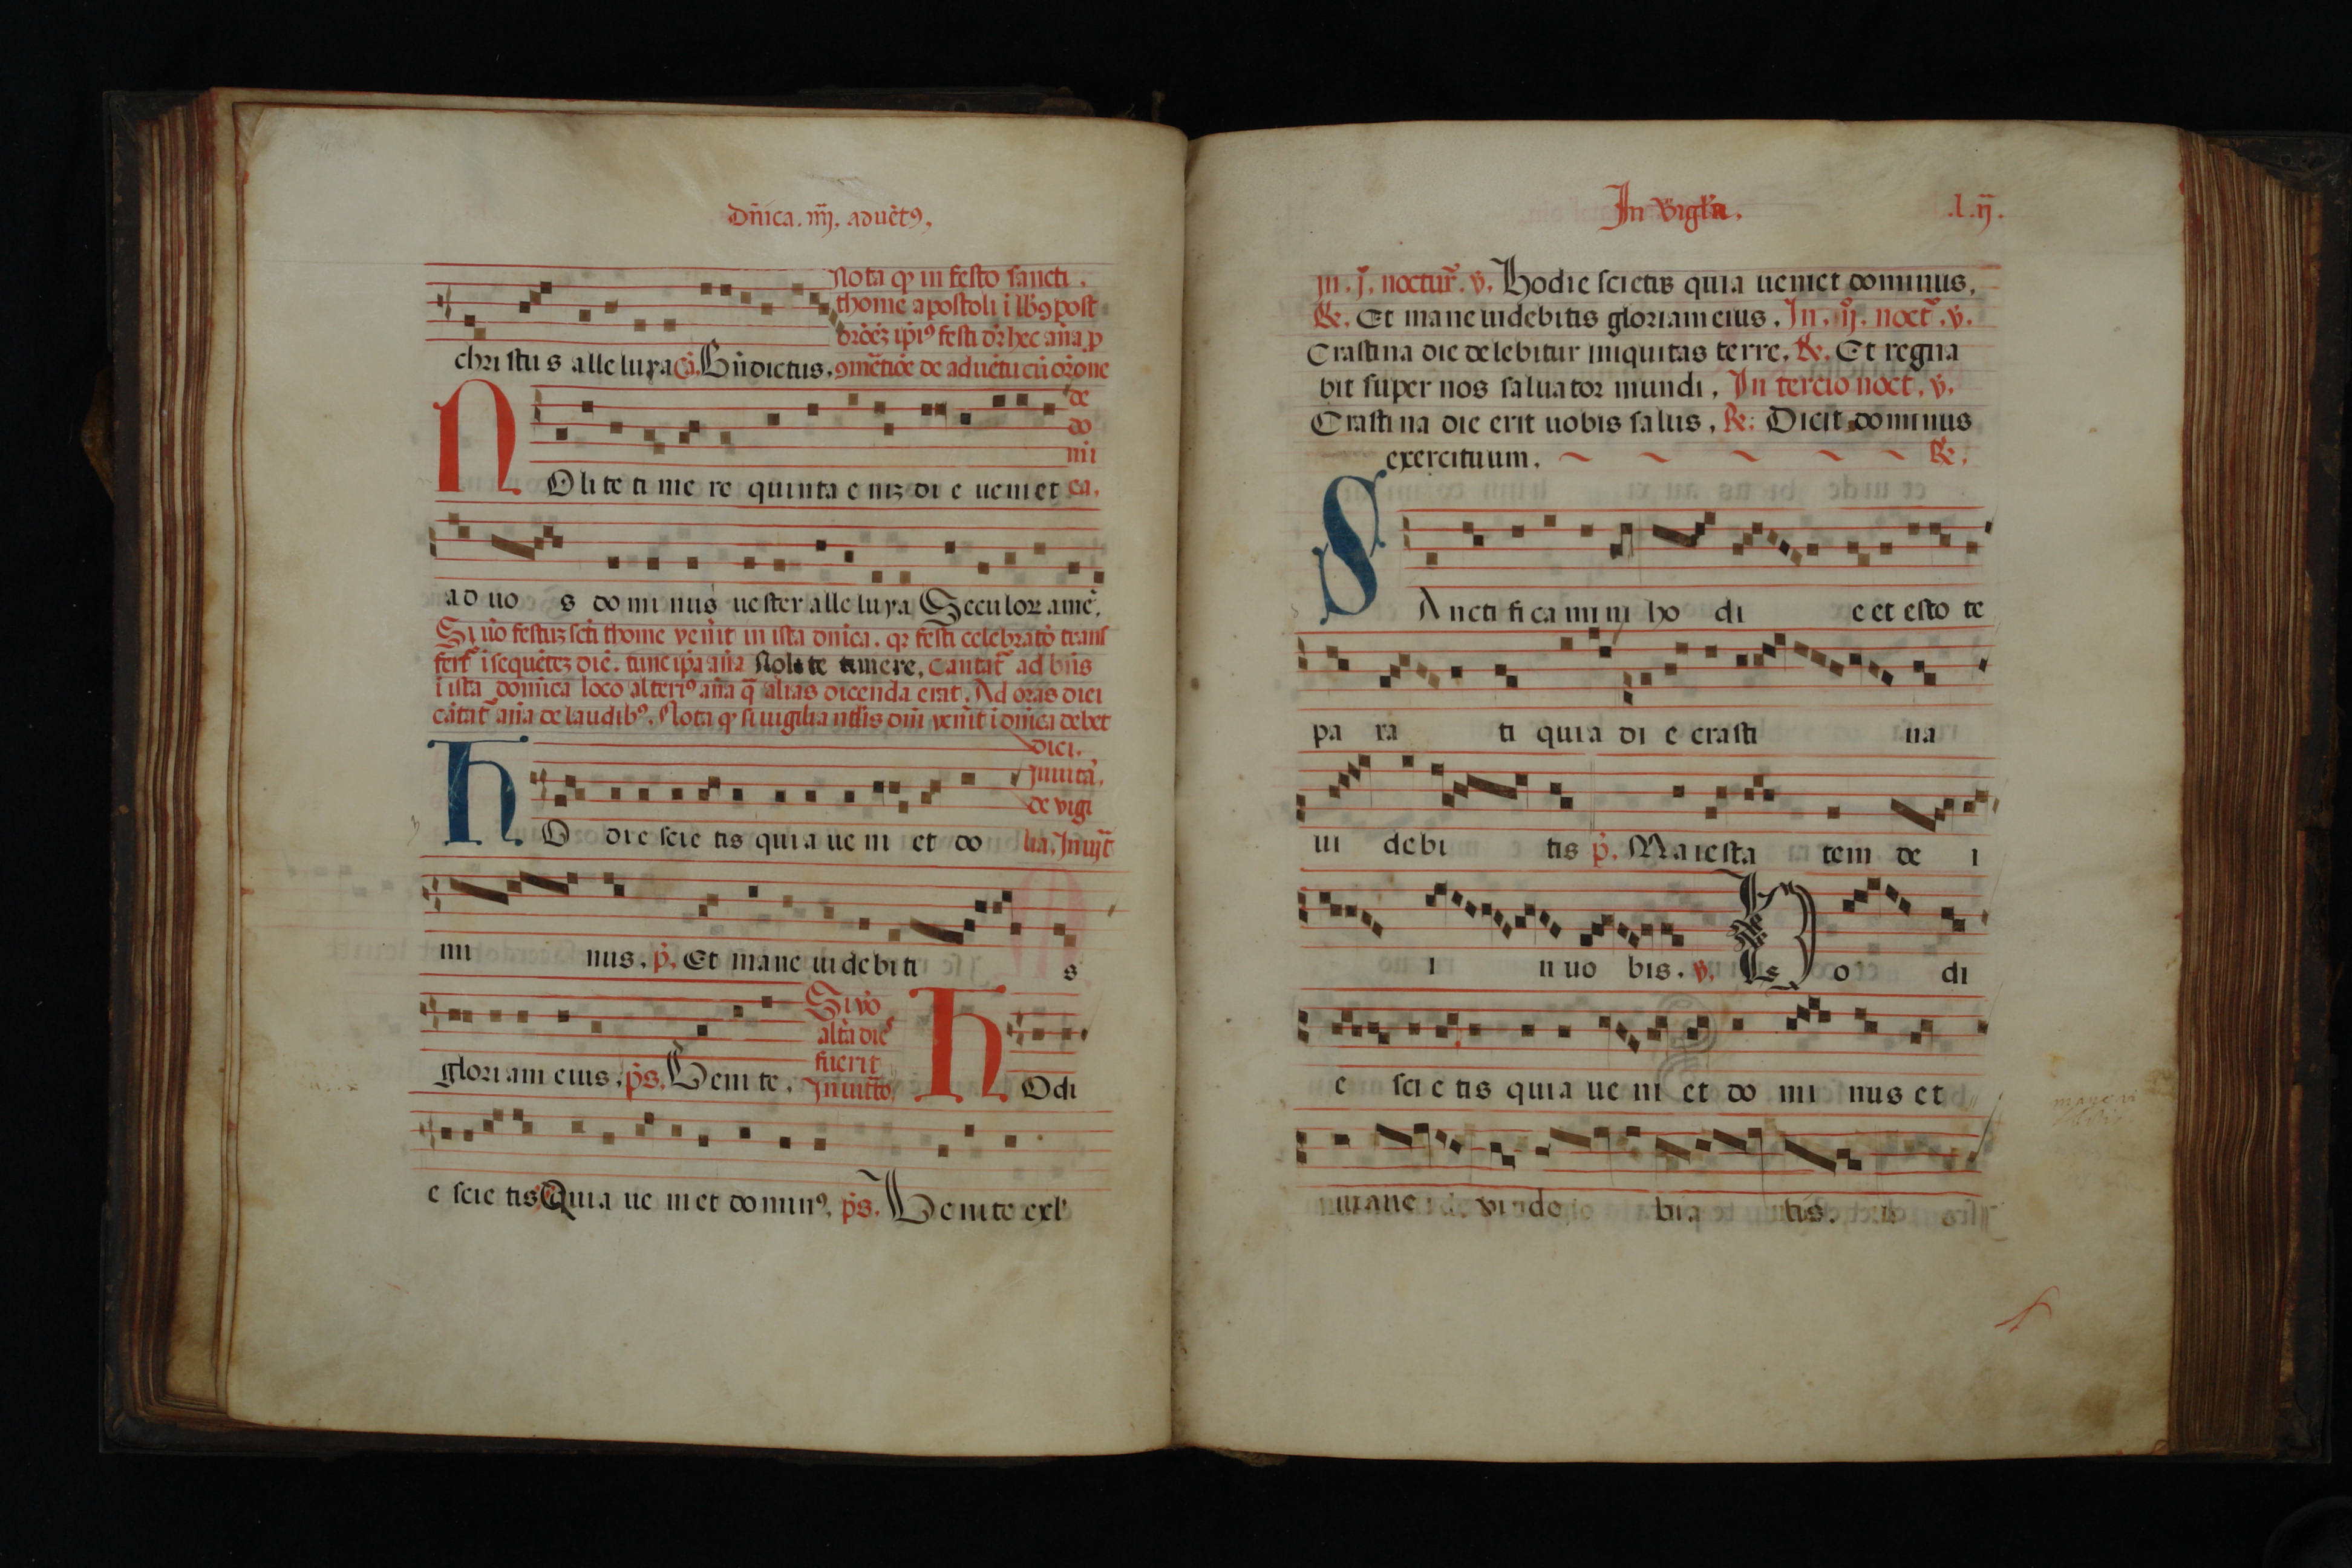 Dñica. iiij. aduẽtꝰ.
Nota ꝙ in festo sancti
thome apostoli i lbꝰ post
christus alleluya Bñdictus, ꝯmẽtiõe de aduẽtu cũ orõne
de
do
mi
NOlite timere quinta enĩꝫ die ueniet ca.
ad uos dominus uester alleluya Seculoꝝ amẽ.
Si ṽo festuꝫ scti thome venit in ista dnica. qꝛ festi celebratõ trans
fert᷑ i sequẽteꝫ diẽ. tunc ip̃a añã Nolite timere, Cantat᷑ ad bñs
i ista domica loco alteriꝰ añã q̃ alias dicenda erat. Ad oras diei
cãtat᷑ añã de laudibꝰ. Nota ꝙ si uigilia nt̃lis dñi venit i dñica debet
dici.
Inuita.
de vigi
HOdie scietis quia ueniet do lia. Inuit̃
minus. p̃. Et mane uidebitis
Si ṽo
alta die
fuerit
gloriam eius. p̃s. Venite. Inuitto HOdi
e scietis Quia ueniet dominꝰ. p̃s. Venite exl'
In vigl'a. .l.ij.
in. j. noctur̃. ẏ. Hodie scietis quia ueniet dominus.
℟. Et mane uidebitis gloriam eius. In. ij. noct̃. ẏ.
Crastina die delebitur iniquitas terre. ℟. Et regna
bit super nos saluator mundi. In tercio noct. ẏ.
Crastina die erit uobis salus. ℟: Dicit dominus
exercituum. ℟.
SAnctificamini hodie et estote
parati quia die crastina
uidebitis p̃. Maiestatem dei
in uobis. ẏ. Hodi
e scietis quia ueniet dominus et
mane videbitis.